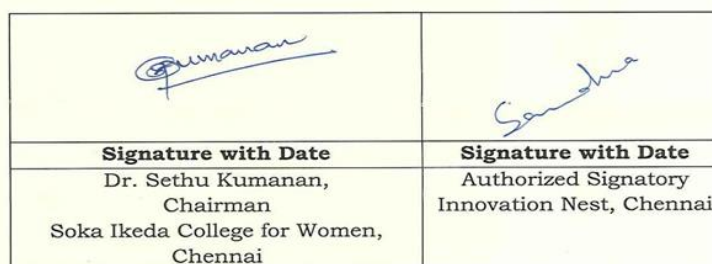 Kumanan
Signature with Date
Signature with Date
Dr. Sethu Kumanan,
Chairman
Soka Ikeda College for Women,
Chennai
Authorized Signatory
Innovation Nest, Chennai